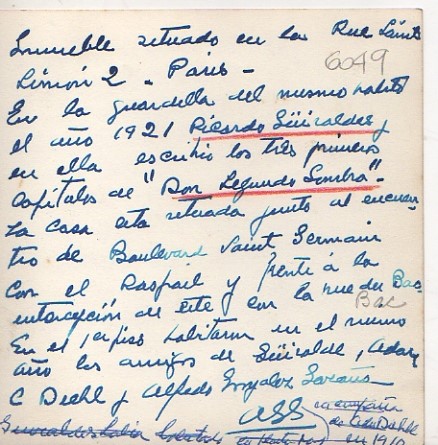 Inmueble situado en la Rue Saint
Simón 2 - Paris -
6049
En la guardilla del mismo habitó
el año 1921 Ricardo Güiraldes y
en ella escribió los tres primeros
capítulos de "Don Segundo Sombra" -
La casa está situada junto al encuen-
tro de Boulevard Saint Germain
con el Raspail y frente á la
intersección de este con la rue du Bac
Bac
En el 1er piso habitaron en el mismo
año los amigos de Güiralde, Adan
C Diehl y Alfredo González Garaño -
en compañía
de Adan Diehl
Güiraldes había habitado en 1910